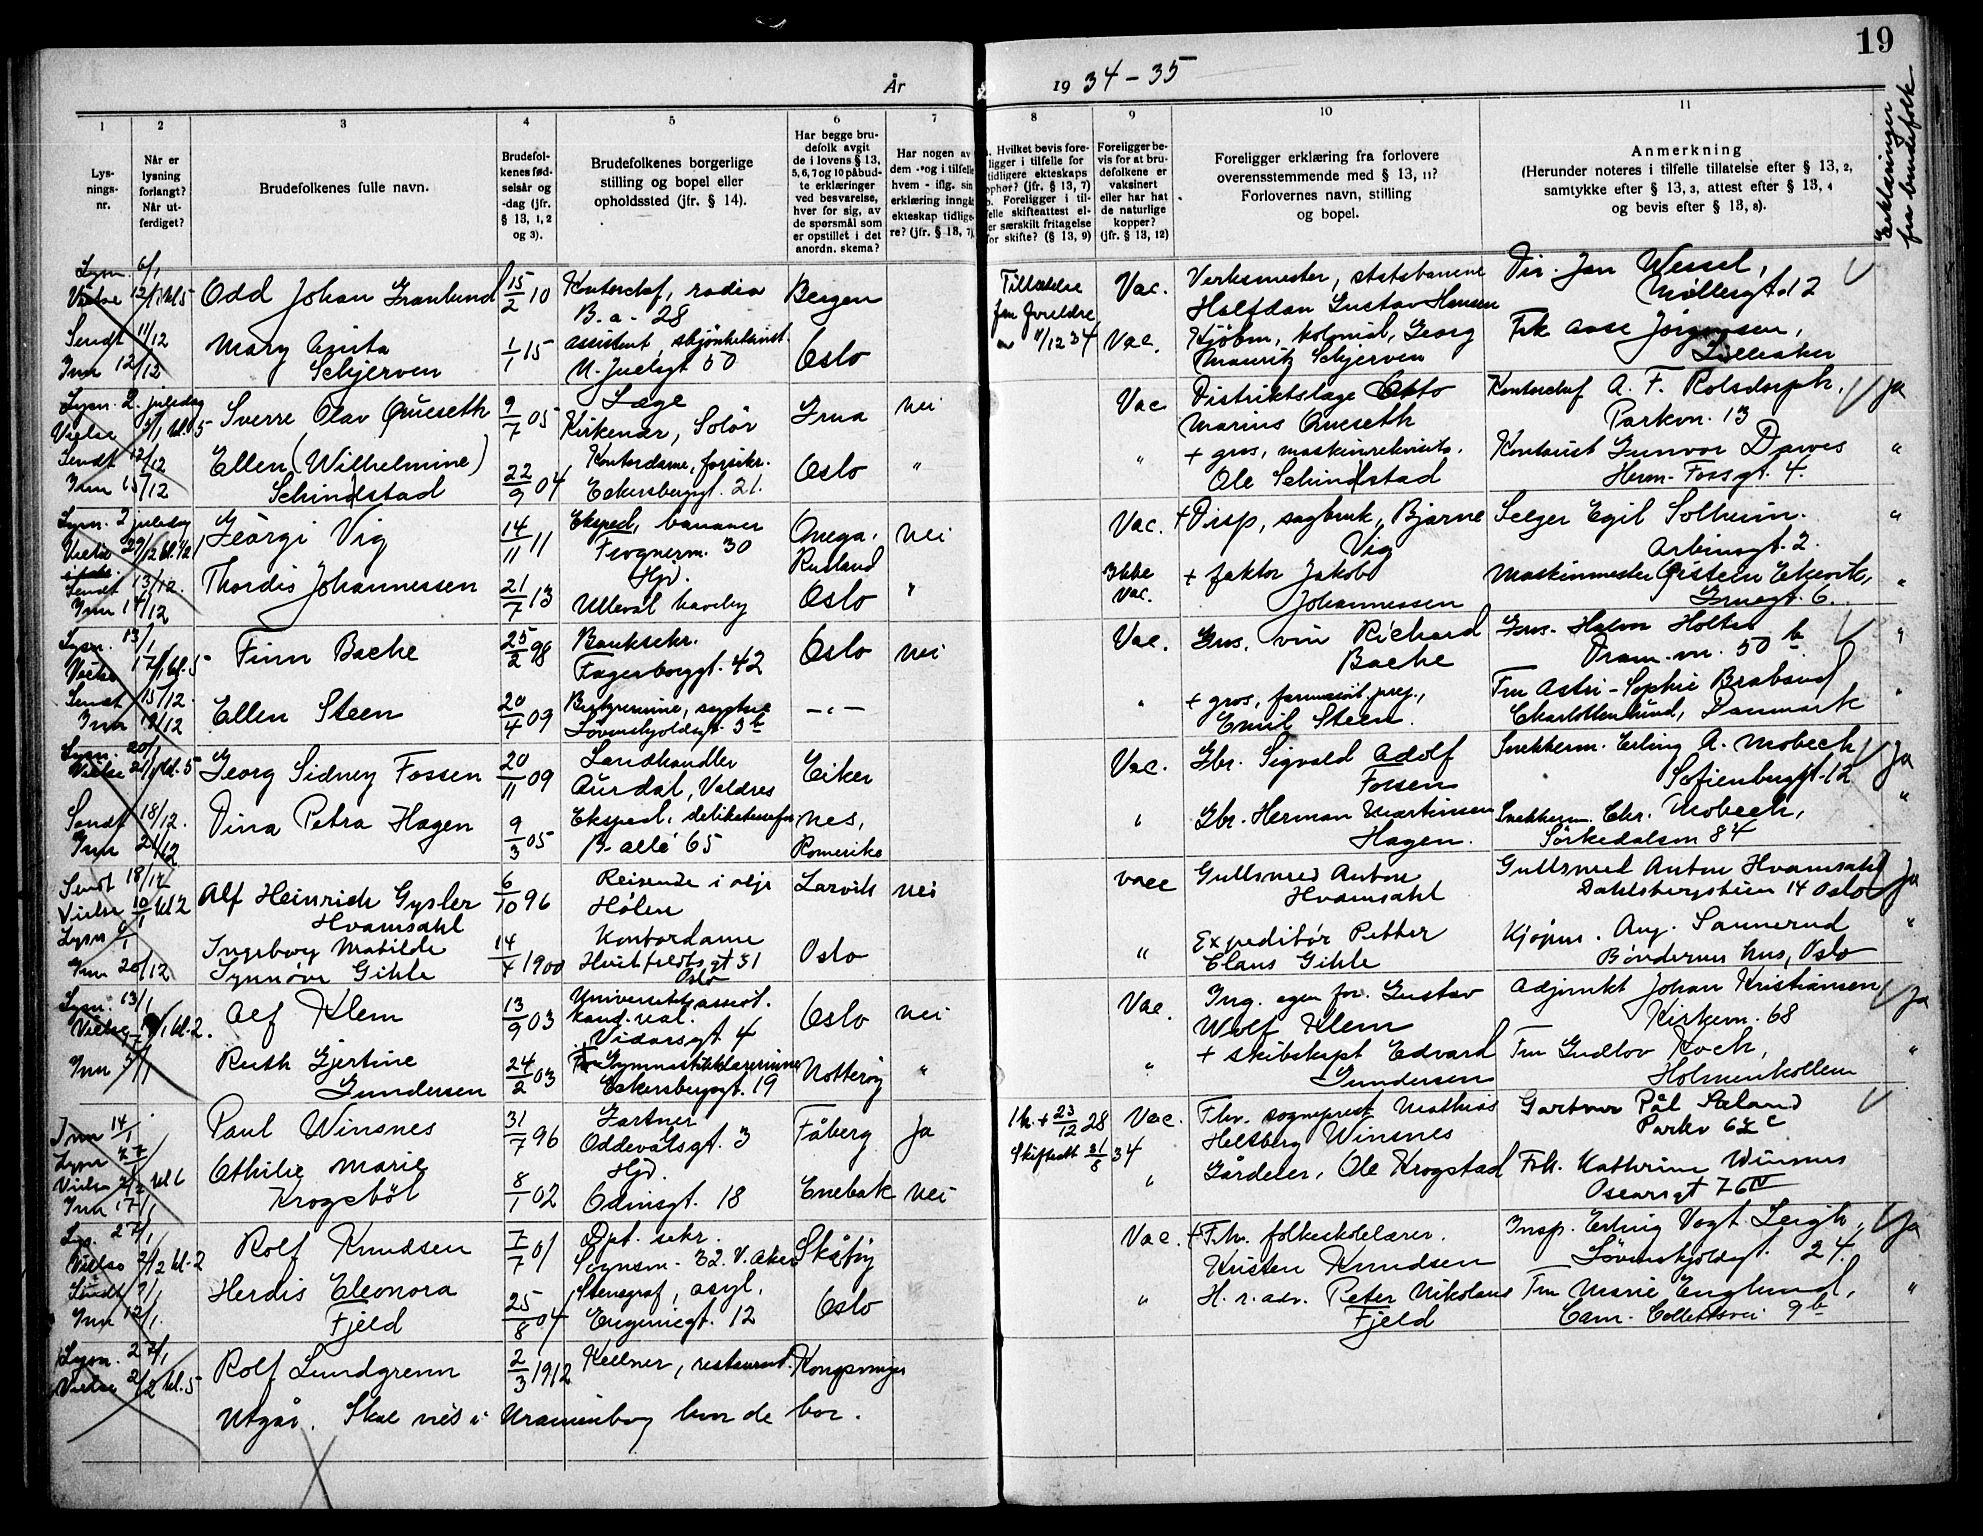 19
År
19 34-35
1
2
3
4
5
6
7
8
9
10
11
Lys-
nings-
nr.
Når er
lysning
forlangt?
Når ut-
ferdiget?
Brudefolkenes fulle navn.
Brudefol-
kenes fød-
selsår og
-dag (jfr.
§ 13, 1, 2
og 3).
Brudefolkenes borgerlige
stilling og bopel eller
opholdssted (jfr. § 14).
Har begge bru-
defolk avgit
de i lovens § 13,
5, 6, 7 og 10 påbud-
te erklæringer
ved besvarelse,
hver for sig, av
de spørsmål som
er opstillet i det
anordn. skema?
Har nogen av
dem - og i tilfelle
hvem - iflg. sin
erklæring inngåt
ekteskap tidlige-
re? (jfr. § 13, 7)
Hvilket bevis fore-
ligger i tilfelle for
tidligere ekteskaps
ophør? (jfr. § 13, 7)
b. Foreligger i til-
felle skifteattest el-
er særskilt fritagelse
for skifte? (§ 13, 9)
Foreligger be-
vis for at bru-
defolkene er
vaksinert
eller har hat
de naturlige
kopper?
(jfr. § 13, 12)
Foreligger erklæring fra forlovere
overensstemmende med § 13, 11?
Forlovernes navn, stilling
og bopel.
Anmerkning
(Herunder noteres i tilfelle tillatelse efter § 13, 2,
samtykke efter § 13, 3, attest efter § 13, 4
og bevis efter § 13, 8).
Erklæringer
fra brudefolk
Lysn. 6/1
Vielse 12/1 kl. 5
Odd Johan Granlund
15/2 10
Kontorchef, radio
B. a. 28
Bergen
Tillatelse
fra foreldre
11/12 34
Vac.
Verksmester, statsbanene
Halfdan Gustav Hansen
Dir. Jan Wessel,
Møllergt. 12
Sendt 11/12
Inn 12/12
Mary Anita
Schjerven
1/1 15
N. Juelsgt 50
Oslo
Vac.
Kjøbm, kolonial, Georg
Mauritz Schjerven
Frk Aase Jørgensen,
Lilleaker
Lysn. 2. juledag
Vielse 5/1 kl. 5
Sverre Olav Queseth
9/7 05
Læge
Kirkenær, Solør
Grua
Nei
Vac
Distriktslæge Otto
Marius Queseth
Kontorchef A. F. Rolsdorph.
Parkvn. 13
Ja
Sendt 12/12
Inn 15/12
Ellen (Wilhelmine)
Schindstad
22/9 04
Kontordame, forsikr.
Eckersbergsgt. 21.
Oslo
"
"
+ gros, maskinrekvisita.
Ole Schindstad
Kontorist Gunvor Dawes
Herm. Fossgt. 4.
"
Lysn. 2 juledag
Vielse 29/12 kl. 1/2
Georgi Vig
14/11 11
Eksped, bananer
Frognerm. 30
Onega,
Rusland
Nei
Vac.
+ Disp, sagbruk, Bjarne
Vig
Selger Egil Solheim.
Arbinsgt. 2.
"
Sendt 13/12.
Inn 14/12
Thordis Johannessen
21/7 13
Hjv.
Ullevål haveby
Oslo
"
Ikke
vac.
+ faktor Jakob
Johannessen
Maskinmester Øistein Ekevik,
Gruegt. 6.
"
Lysn. 13/1
Vielse 17/1 kl. 5
Finn Bache
25/2 98
Banksekr.
Fagerborggt. 42
Oslo
Nei
Vac.
Gros. vin Richard
Bache
Gros. Halvor Holter
Dram. vn. 50 b
"
Sendt 15/12.
Inn 18/12
Ellen Steen
20/4 09
Løvenskjoldsgt. 3b
-"-
"
+ gros, farmasöit. prep.,
Emil Steen.
Fru Astri-Sophie Braband
Charlottenlund, Danmark
"
Lysn. 20/1
Vielse 21/1 kl. 5
Georg Sidney Fossen
20/11 09
Landhandler
Aurdal, Valdres
Eiker
Vac.
Gbr. Sigvald Adolf
Fossen
Snekkerm. Erling A. Mobech
Sofienberggt. 12
Ja
Sendt 18/12.
Inn 21/12
Dina Petra Hagen
9/3 05
Eksped. delikatessefor.
B. allé 65
Nes,
Romerike
"
Gbr. Herman Martinsen
Hagen.
Snekkerm. Chr. Mobech,
Sørkedalsvn 84
"
Sendt 18/12
Vielse 10/1 kl 2
Alf Heinrich Gysler
Hvamsahl
6/10 96
Reisende i olje
Hölen
Larvik
Nei
vacc
Gullsmed Anton
Hvamsahl
Gullsmed Anton Hvamsahl
Dahlsbergstien 14 Oslo
Ja
Lysn 6/1
Inn 20/12
Ingeborg Matilde
Synnöve Gihle
14/4 1900
Kontordame
Huitfeldts gt 31
Oslo
Oslo
"
Expeditör Petter
Claus Gihle
Kjøpm. Aug. Sannerud
Böndernes hus, Oslo
"
Lysn. 13/1
Vielse 19/1 kl. 2.
Alf Klem
13/9 03
Universitetsassist.
kand. real.
Vidarsgt 4
Oslo
Nei
Vac.
Ing. egen for. Gustav
Wolf Klem
Adjunkt Johan Kristiansen
Kirkevn. 68
Ja
Inn 5/1
Ruth Gjertine
Gundersen
24/2 03
Gymnastikklærerinne
Eckersbergsgt. 19
Nøtterøy
"
"
+ skibskapt Edvard
Gundersen
Fru Gudlov Koch,
Holmenkollen
"
Inn 14/1
Lysn 27/1
Paul Winsnes
31/7 96
Gartner
Oddevatsgt. 3
Fåberg
Ja
1 h. + 23/12 28
Skifteatt 31/8 34
Vac.
Fhv. sogneprest Mathias
Heltberg Winsnes
Gartner Pål Sæland
Parkv 62 c
Vielse 2/2 kl 6
Inn 17/1
Othilie Marie
Krogsböl
8/1 02
Hjv.
Odinsgt. 18
Enebak
Nei
"
Gårdeier, Ole Krogstad
Frk. Kathrine Winsnes
Oscarsgt 76 IV
Lys. 27/1
Vielse 2/2 kl. 2
Rolf Knudsen
7/7 01
Dpt. sekr.
Sognsvn. 32. V. Aker
Skåtøy
Vac.
+ Fhv. folkeskolelærer.
Kristen Knudsen
Insp. Erling Vogt Leigh,
Løvenskjoldsgt. 24.
Ja
Sendt 9/1
Inn 12/1.
Herdis Eleonora
Fjeld
25/8 04
Stenograf, asyl,
Eugeniegt. 12
Oslo
"
H. r. adv. Peter Nikolaus
Fjeld
Fru Marie Englund,
Cam. Collettsvei 9b
"
Lysn. 27/1
Vielse 2/2 kl. 5
Rolf Lundgrenn
2/3 1912
Kellner, restaurant.
Kongsvinger
Utgår. Skal vies i Uranienborg hvor de bor.